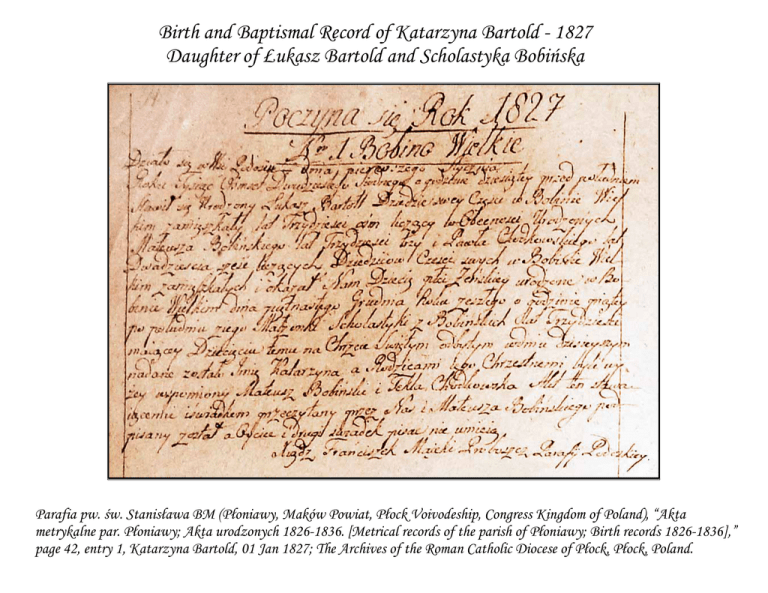 Birth and Baptismal Record of Katarzyna Bartold - 1827
Daughter of Łukasz Bartold and Scholastyka Bobińska
Poczyna się Rok 1827
Nro 1 Bobino Wielkie
Działo się we Wsi dnia pierwszego Stycznia
Roku Tysiąc Ośmset Dwudziestego Siódmego o godzinie dziesiątej przed południem
Stawił się Urodzony Łukasz Bartolt Dziedzic swey Części w Bobinie Wiel
kim zamieszkały lat Trzydzieści ośm liczący w Obecności Urodzonych
Mateusza Bobinskiego lat Trzydzieści trzy i Pawła lat
Dwadzieścia sześć liczących Dziedziców Części swych w Bobinie Wiel
kim zamieszkałych i okazał Nam Dziecię płci Żeńskiey urodzone w Bo
binie Wielkim dnia piętnastego Grudnia Roku zeszłego o godzinie piątey
po południu z iego Małżonki Scholastyki z Bobinskich lat Trzydzieści
maiącey Dziecięciu temu na Chrzcie Świętym odbytym w dniu dzisieyszym
nadane zostało Imię Katarzyna a Rodzicami iego Chrzestnemi byli wy
żey wspomniony Mateusz Bobinski i Tekla Akt ten stawa
iącemu i świadkom przeczytany przez Nas i Mateusza Bobinskiego pod
pisany został a Oyciec i drugi świadek pisać nie umieią
Xiądz Franciszek Proboszcz Parafji
Parafia pw. św. Stanisława BM (Płoniawy, Maków Powiat, Płock Voivodeship, Congress Kingdom of Poland), "Akta
metrykalne par. Płoniawy; Akta urodzonych 1826-1836. [Metrical records of the parish of Płoniawy; Birth records 1826-1836],"
page 42, entry 1, Katarzyna Bartold, 01 Jan 1827; The Archives of the Roman Catholic Diocese of Płock, Płock, Poland.